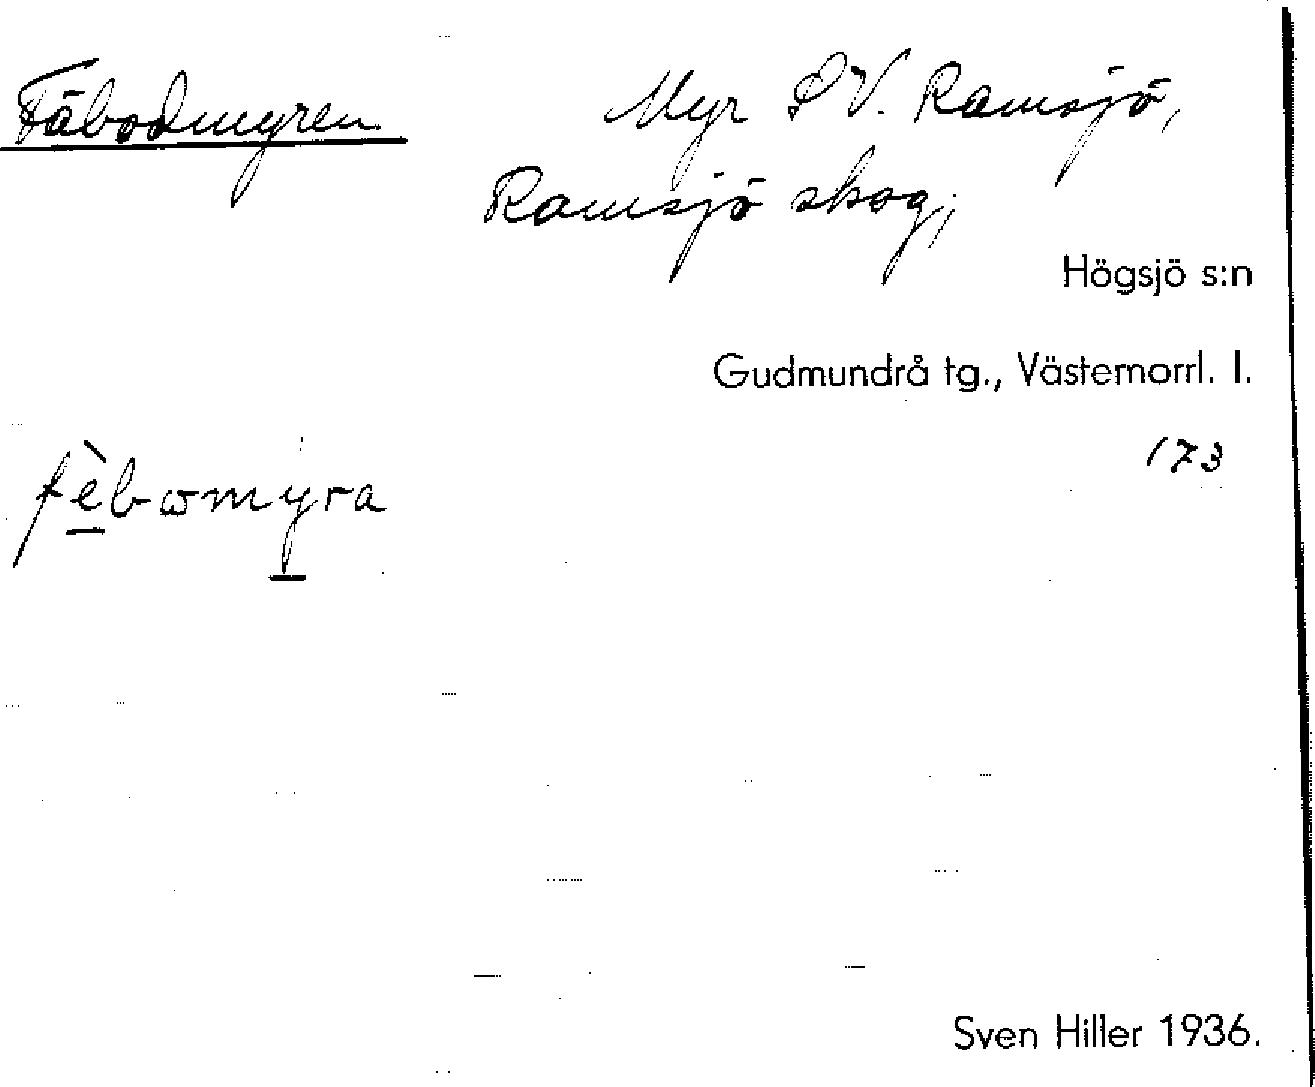 Fäbodmyren Myr SV. Ramsjö,
Ramsjö skog,
Högsjö s:n
Gudmundrå tg., Västernorrl. l.
173
fèbωmyra
Sven Hiller 1936.